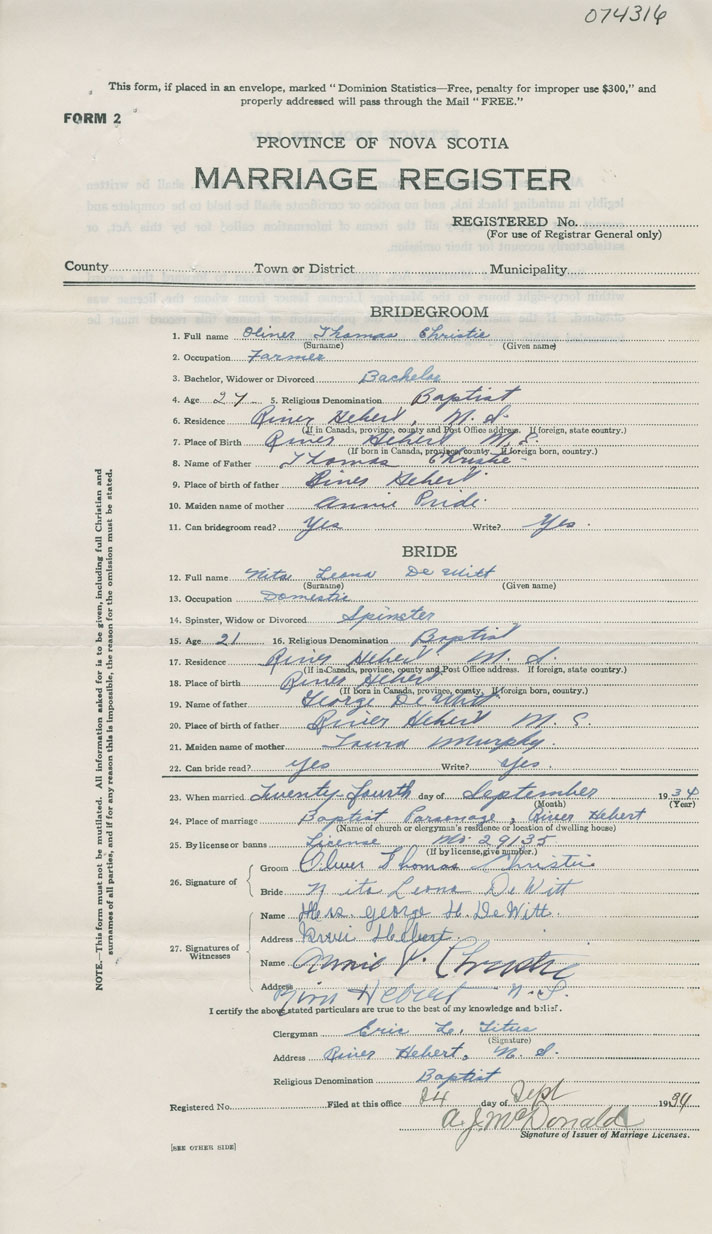 074316
This form, if placed in an envelope, marked "Dominion Statistics—Free, penalty for improper use $300," and
properly addressed will pass through the Mail "FREE."
FORM 2
PROVINCE OF NOVA SCOTIA
MARRIAGE REGISTER
REGISTERED No.
(For use of Registrar General only)
County Town or District Municipality
BRIDEGROOM
1. Full name Oliver Thomas Christie
(Surname) (Given name)
2. Occupation Farmer
3. Bachelor, Widower or Divorced Bachelor
4. Age 27 5. Religious Denomination Baptist
6. Residence River Hebert, N. S.
(If in Canada, province, county and Post Office address. If foreign, state country.)
7. Place of Birth River Hebert N. S.
(If born in Canada, province, county. If foreign born, country.)
8. Name of Father Thomas Christie
9. Place of birth of father River Hebert
10. Maiden name of mother Annie Pride
11. Can bridegroom read? Yes Write? Yes
BRIDE
12. Full name Nita Leona De Witt
(Surname) (Given name)
13. Occupation Domestic
14. Spinster, Widow or Divorced Spinster
15. Age 21 16. Religious Denomination Baptist
17. Residence River Hebert N. S.
(If in Canada, province, county and Post Office address. If foreign, state country.)
18. Place of birth River Hebert
(If born in Canada, province, county. If foreign born, country.)
19. Name of father George De Witt
20. Place of birth of father River Hebert N. S.
21. Maiden name of mother Laura Murphy
22. Can bride read? yes Write? yes
23. When married Twenty-fourth day of September 1934
(Month) (Year)
24. Place of marriage Baptist Parsonage, River Hebert
(Name of church or clergyman's residence or location of dwelling house)
25. By license or banns License No 29135
(If by license, give number.)
26. Signature of
Groom Oliver Thomas Christie
Bride Nita Leona DeWitt
27. Signatures of Witnesses
Name Mrs George H. DeWitt
Address River Hebert
Name Annie P. Christie
Address River Hebert N. S.
I certify the above stated particulars are true to the best of my knowledge and belief.
Clergyman Eric L. Titus
(Signature)
Address River Hebert, N. S.
Religious Denomination Baptist
Registered No. Filed at this office 24 day of Sept 1934
A. J. McDonald
Signature of Issuer of Marriage Licenses.
[SEE OTHER SIDE]
NOTE.—This form must not be mutilated. All information asked for is to be given, including full Christian and
surnames of all parties, and if for any reason this is impossible, the reason for the omission must be stated.